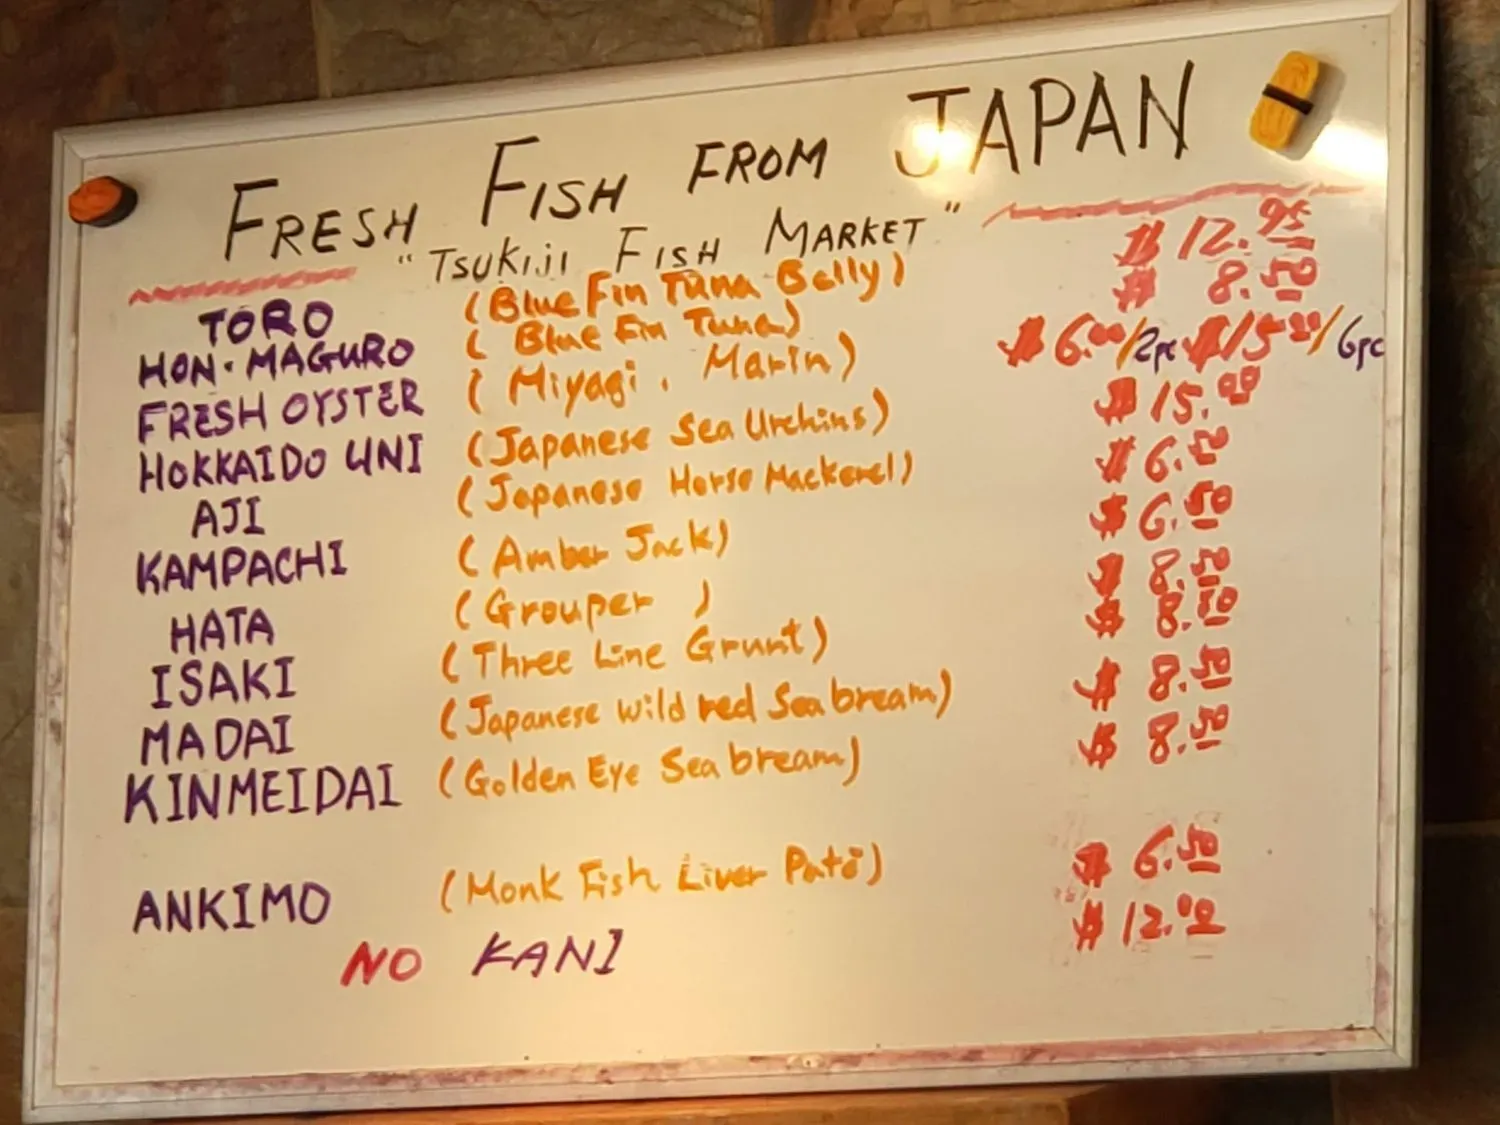 FRESH FISH FROM JAPAN
"TSUKIJI FISH MARKET"
TORO (Blue Fin Tuna Belly) $ 12.95
HON・MAGURO (Blue Fin Tuna) $ 8.50
FRESH OYSTER (Miyagi, Marin) $6.00/2pc $15.50/6pc
HOKKAIDO UNI (Japanese Sea Urchins) $15.00
AJI (Japanese Horse Mackerel) $6.50
KAMPACHI (Amber Jack) $6.50
HATA (Grouper) $8.50
ISAKI (Three Line Grunt) $8.50
MADAI (Japanese Wild red Seabream) $8.50
KINMEIDAI (Golden Eye Seabream) $8.50
ANKIMO (Monk Fish Liver Paté) $6.50
NO KANI $12.00